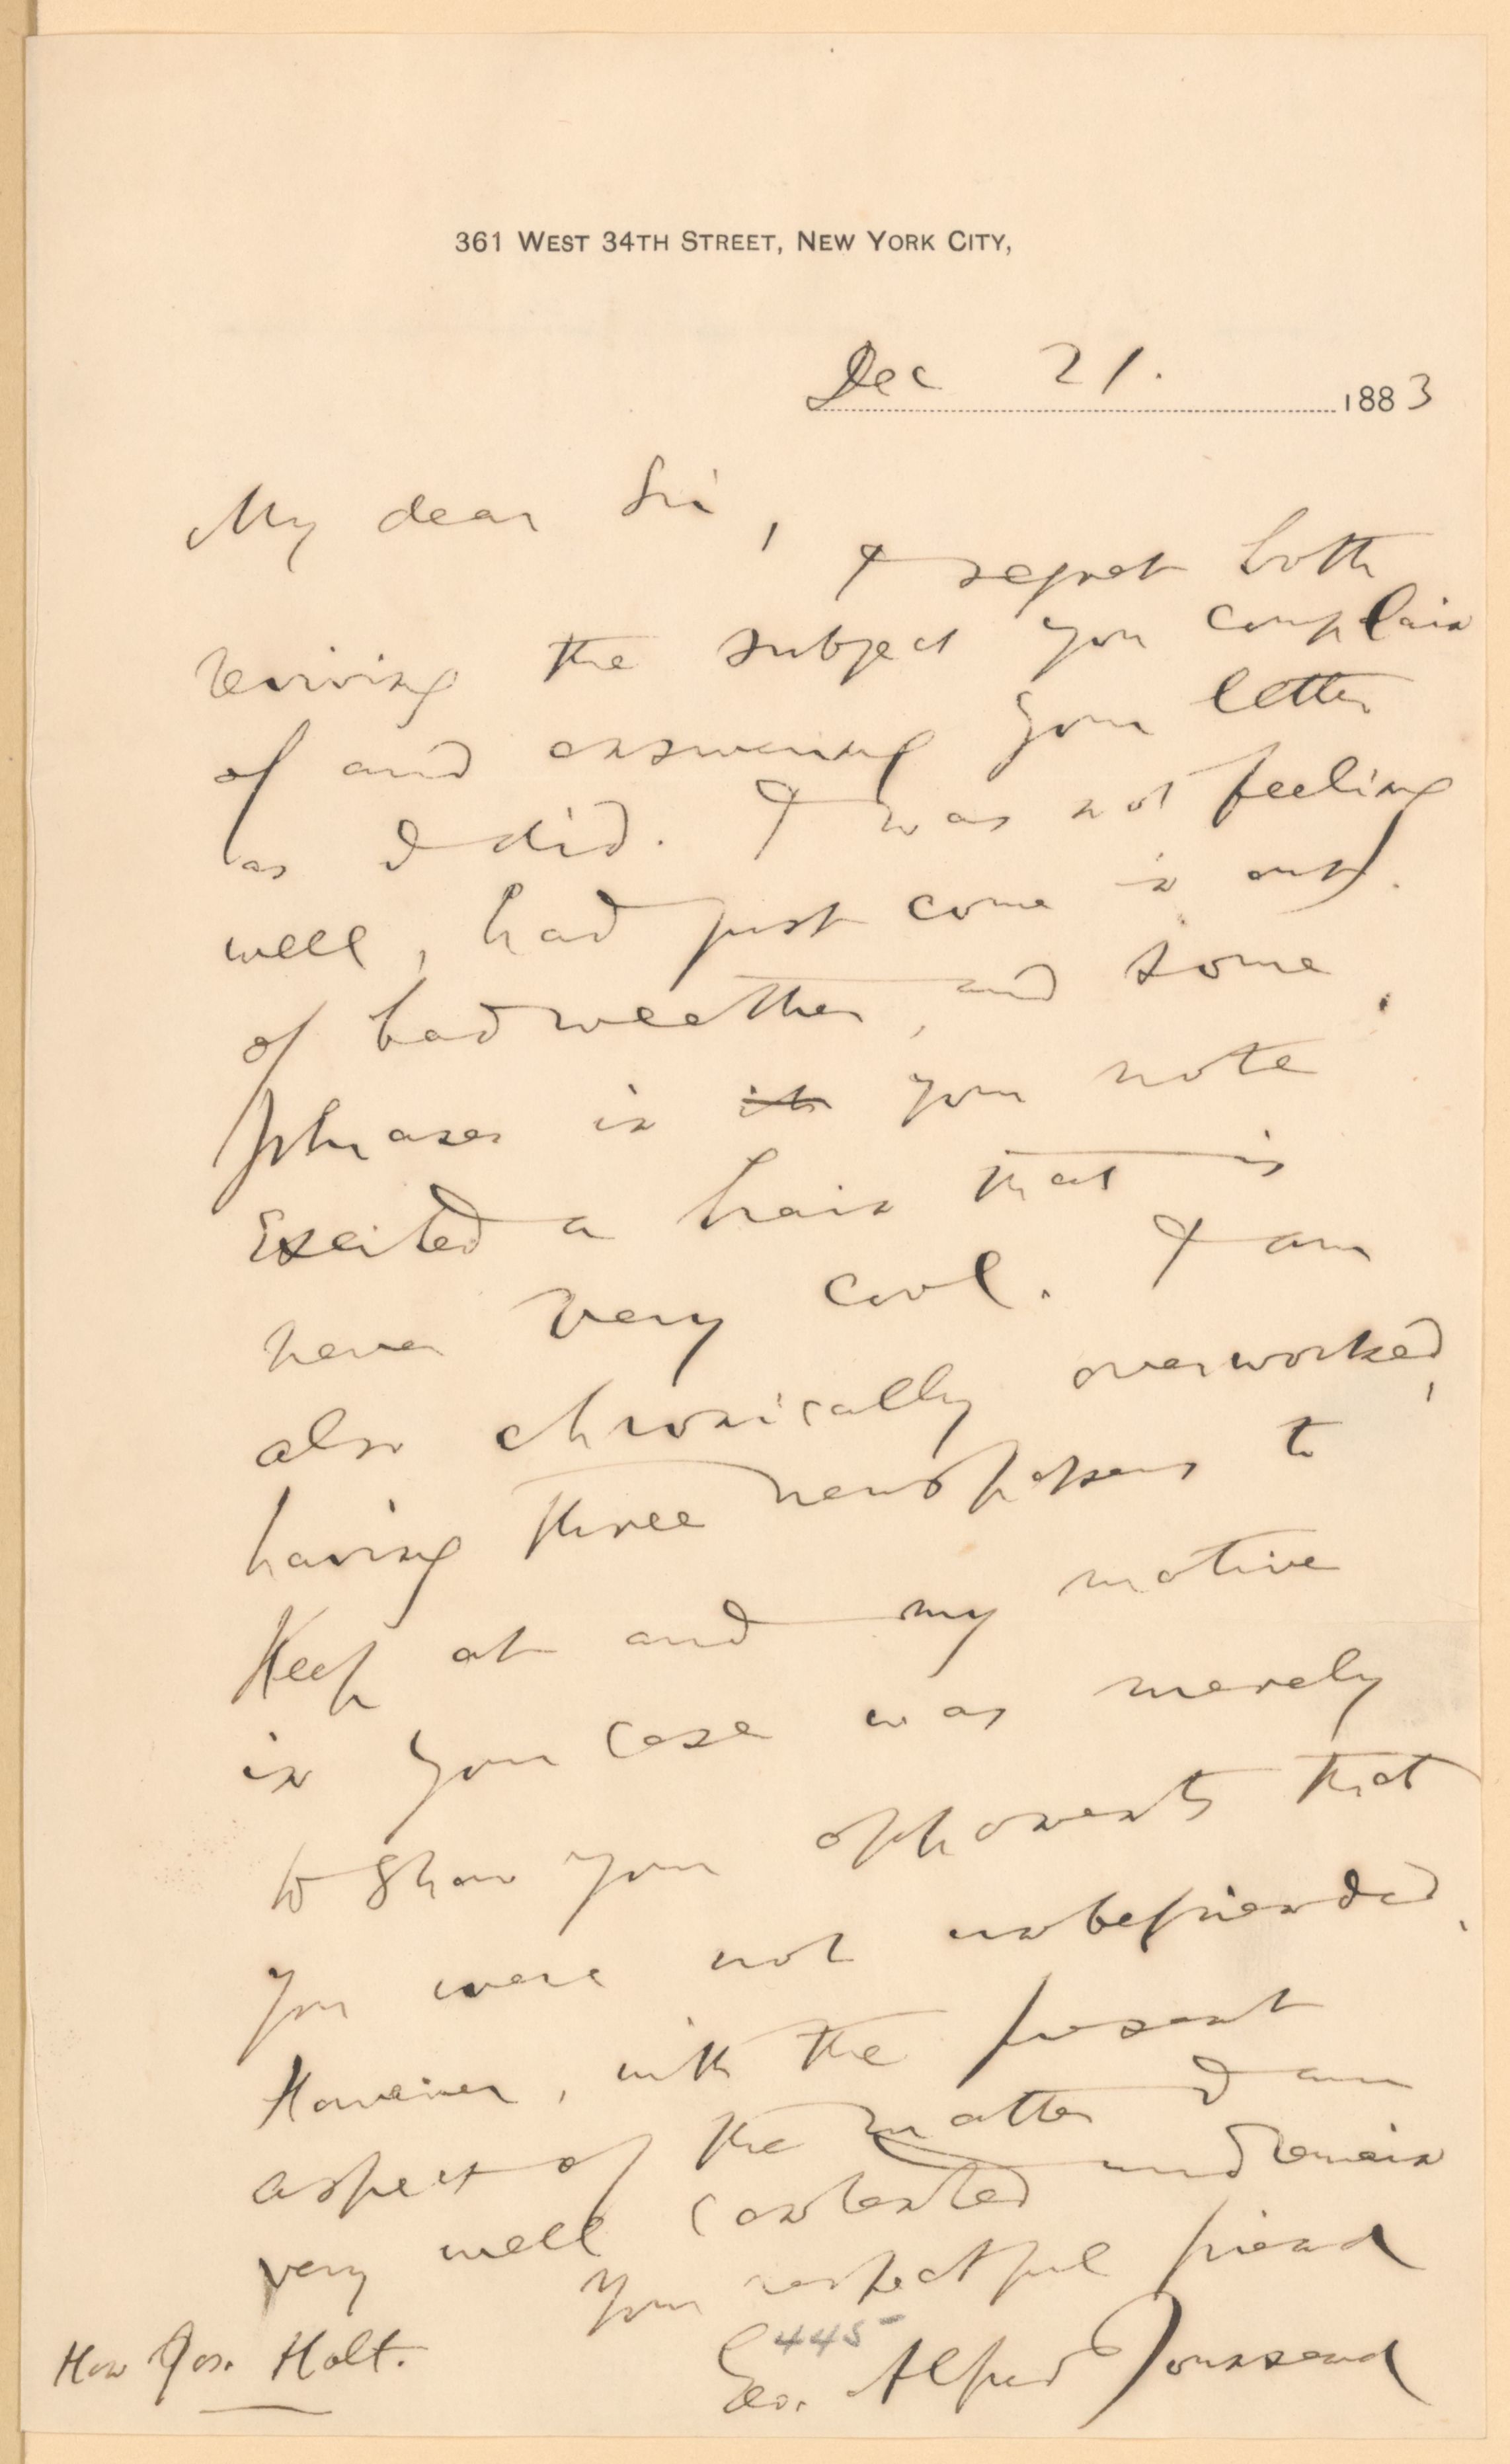 361 WEST 34TH STREET, NEW YORK CITY,
Dec 21. 1883
My dear Sir,
I regret both
reviving the subject you complain
of and answering your letter
as I did. I was not feeling
well, had just come in out
of bad weather, and some
phrases in it your note
excited a brain that is
never very cool. I am
also chronically overworked,
having three newspapers to
keep at and my motive
in your case was merely
to show your opponents that
you were not unbefriended.
However, with the present
aspect of the matter I am
very well contented and remain
Your respectful friend
445
Geo. Alfred Townsend
Hon Jos. Holt.